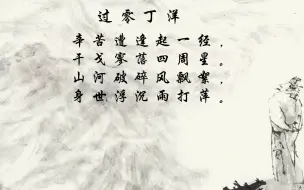 过零丁洋
辛苦遭逢起一经，
干戈寥落四周星。
山河破碎风飘絮，
身世浮沉雨打萍。